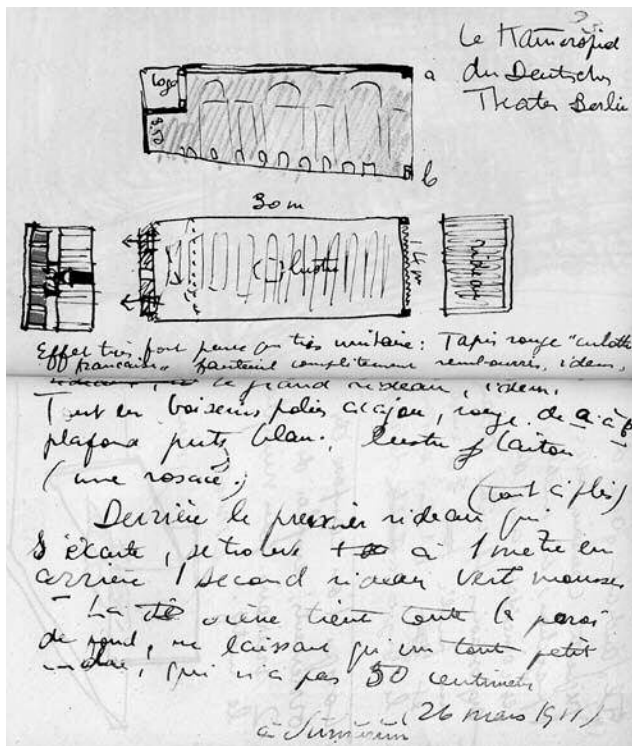 Le Kamerspiel
du Deutsches
Theater Berlin
loge
a
3.50
b
30 m
lustre
14 m
rideau
Effet très fort parce que très unitaire : Tapis rouge "culotte
française" fauteuil complètement rembourrés, idem,
le grand rideau, idem.
Tout en boiseries polies acajou, rouge. de a à b
plafond putz blanc, lustre laiton
(une rosace.)
(tout à plis)
Derrière le premier rideau qui
s'écarte, se trouve à 1 mètre en
arrière 1 second rideau vert mousse
La scène tient toute la paroi
de fond, ne laissant qu'un tout petit
qui n'a pas 50 centimètres
(26 mars 1911)